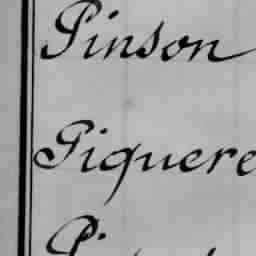 Pinson
Piquere